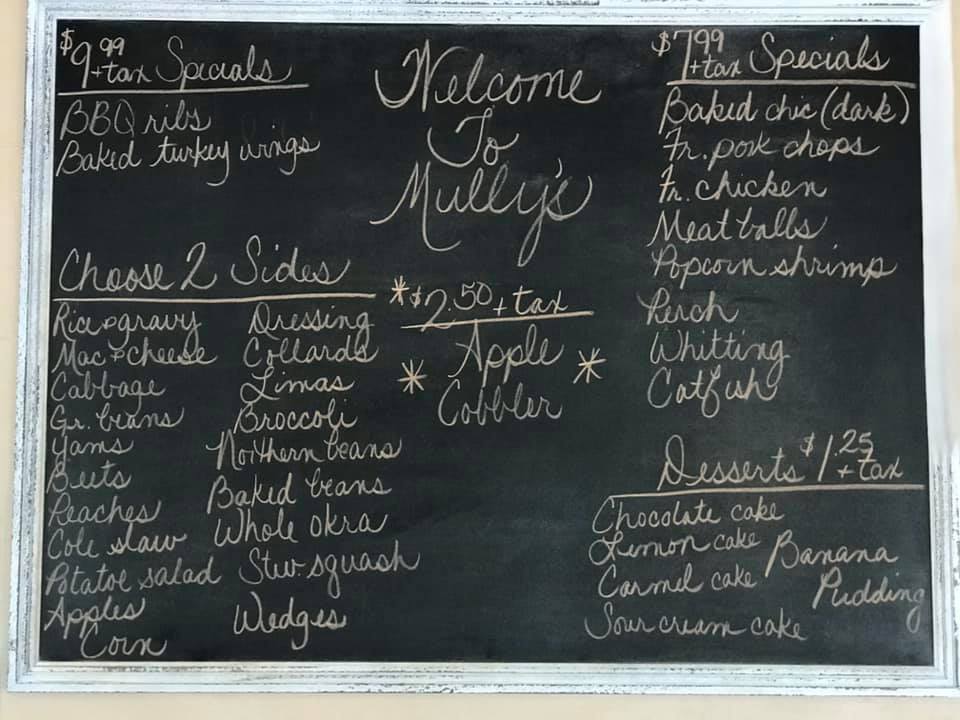 $9.99 +tax Specials
BBQ ribs
Baked turkey wings
Welcome
To
Mully's
$7.99 +tax Specials
Baked chic (dark)
Fr. pork chops
Fr. chicken
Meatballs
Popcorn shrimp
Perch
Whitting
Catfish
Choose 2 Sides
Rice & gravy
Mac & cheese
Cabbage
Gr. beans
Yams
Beets
Peaches
Cole slaw
Potatoe salad
Apples
Corn
Dressing
Collards
Limas
Broccoli
Northern beans
Baked beans
Whole okra
Stew. squash
Wedges
*$2.50 + tax
* Apple *
Cobbler
Desserts $1.25 + tax
Chocolate cake
Lemon cake
Carmel cake
Sour cream cake
Banana
Pudding